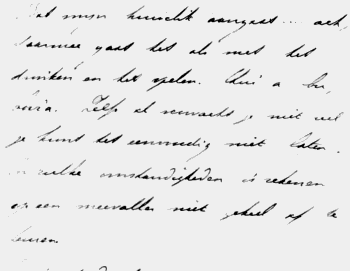 Wat mijn huwelijk aangaat... ach,
daarmee gaat het als met het
drinken en het spelen. Qui a bu,
boira. Zelfs al verwacht je niet veel
je kunt het eenvoudig niet laten.
In zulke omstandigheden is rekenen
op een meevaller niet geheel af te
keuren